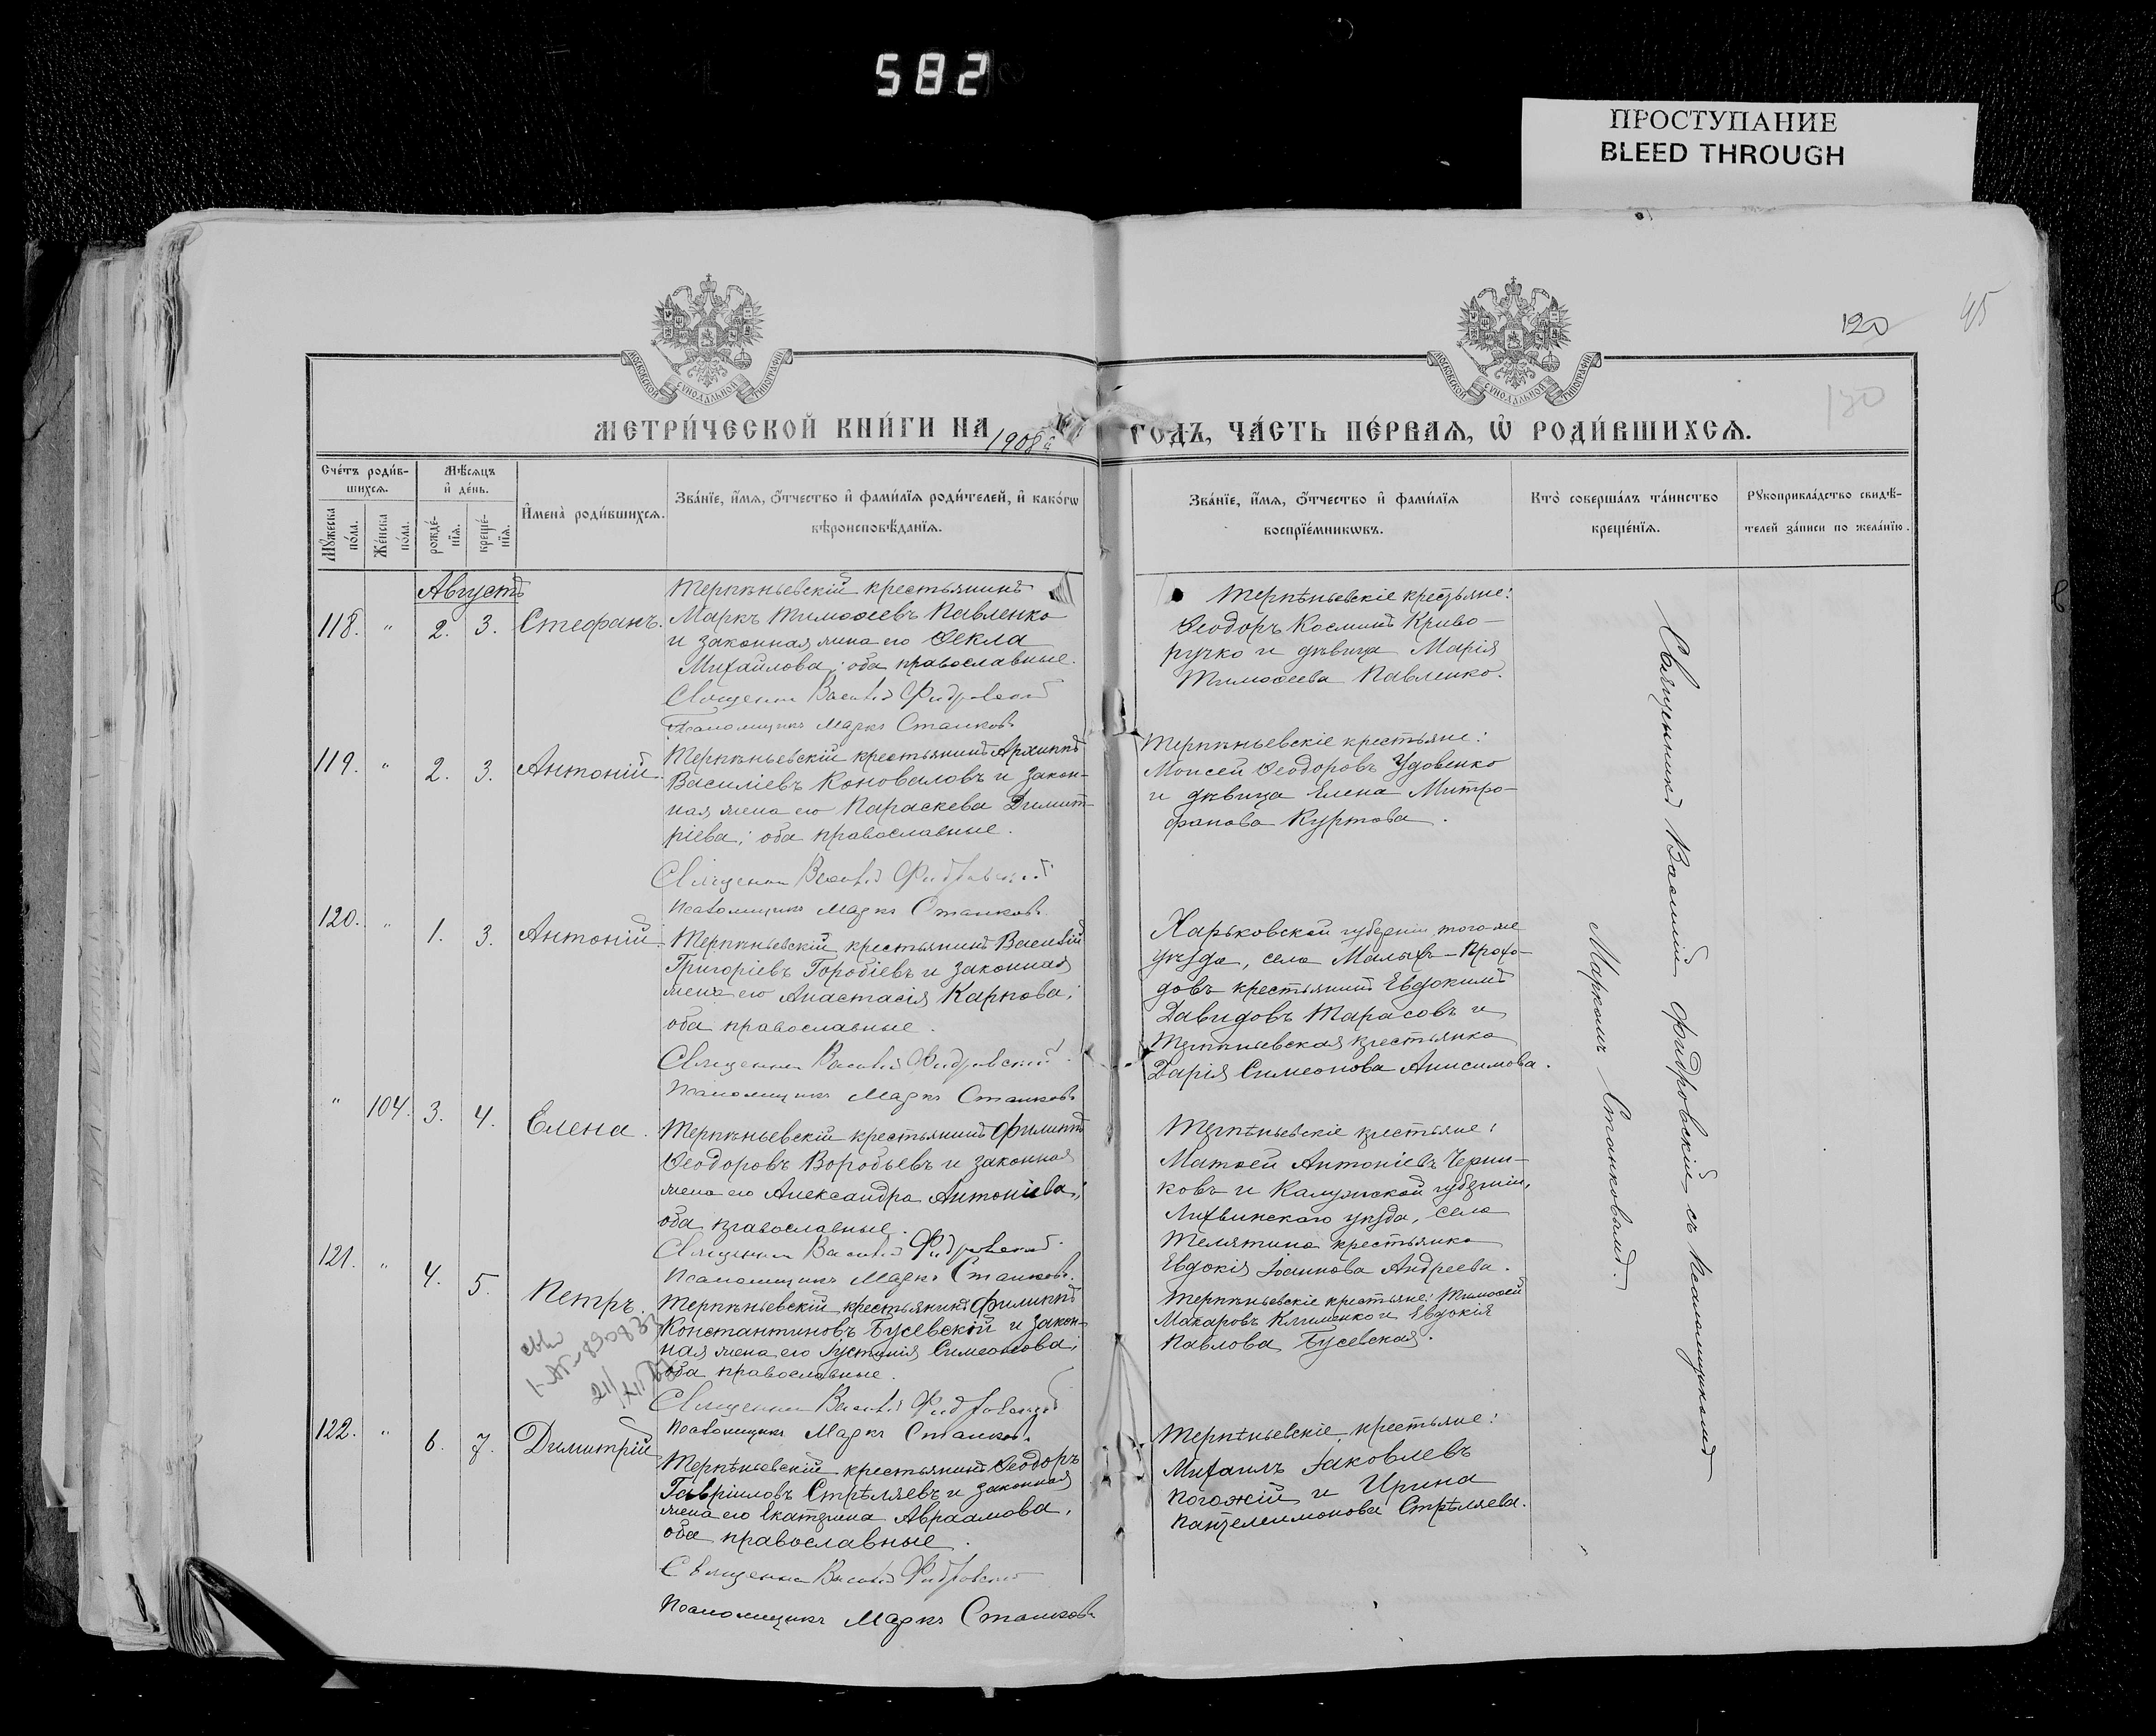 582
ПРОСТУПАНИЕ
BLEED THROUGH
120
45
120
МОСКОВСКОЙ СѴНОДАЛЬНОЙ ТИПОГРАФІИ
МОСКОВСКОЙ СѴНОДАЛЬНОЙ ТИПОГРАФІИ
МЕТРИ́ЧЕСКОЙ КНИ́ГИ НА 1908 й ГОДЪ, ЧА́СТЬ ПЕ́РВАѦ, Ѡ҆ РОДИ́ВШИХСѦ.
Сче́тъ роди́в-
шихсѧ.
Мꙋ́жеска по́ла.
Же́нска по́ла.
Мѣ́сѧцъ
и҆ де́нь.
рожде́-
нїѧ.
креще́-
нїѧ.
И҆мена̀ роди́вшихсѧ.
Зва́нїе, и҆́мѧ, ѻ҆́тчество и҆ фами́лїѧ роди́телей, и҆ како́гѡ
вѣроисповѣ́данїѧ.
Зва́нїе, и҆́мѧ, ѻ҆́тчество и҆ фами́лїѧ
воспрїе́мникѡвъ.
Кто̀ соверша́лъ та́инство
креще́нїѧ.
Рꙋкоприкла́дство свидѣ́-
телей за́писи по жела́нїю.
Августъ
118. " 2. 3. Стефанъ.
Терпѣньевскій крестьянинъ
Маркъ Тимоѳеевъ Павленко
и законная жена его Ѳекла
Михайлова; оба православные.
Священникъ Василій Фидровскій
Псаломщикъ Маркъ Станковъ
Терпѣньевскіе крестьяне:
Ѳеодоръ Косминъ Криво-
ручко и дѣвица Марія
Тимоѳеева Павленко.
119. " 2. 3. Антоній.
Терпѣньевскій крестьянинъ Архиппъ
Василіевъ Коноваловъ и закон-
ная жена его Параскева Димит-
ріева; оба православные.
Священникъ Василій Фидровскій
Псаломщикъ Маркъ Станковъ
Терпѣньевскіе крестьяне:
Моисей Ѳеодоровъ Удовенко
и дѣвица Елена Митро-
фанова Куртова.
120. " 1. 3. Антоній.
Терпѣньевскій крестьянинъ Василій
Григоріевъ Горобіевъ и законная
жена его Анастасія Карпова;
оба православные.
Священникъ Василій Фидровскій
Псаломщикъ Маркъ Станковъ
Харьковской губерніи того-же
уѣзда, села Малыхъ-Прохо-
довъ крестьянинъ Евдокимъ
Давидовъ Тарасовъ и
Терпѣньевская крестьянка
Дарія Симеонова Анисимова.
" 104. 3. 4. Елена.
Терпѣньевскій крестьянинъ Филиппъ
Ѳеодоровъ Воробьевъ и законная
жена его Александра Антоніева;
оба православные.
Священникъ Василій Фидровскій
Псаломщикъ Маркъ Станковъ.
Терпѣньевскіе крестьяне:
Матѳей Антоніевъ Черни-
ковъ и Калужской губерніи,
Лихвинского уѣзда, села
Телятина крестьянка
Евдокія Іоаннова Андреева.
121. " 4. 5. Петръ.
Терпѣньевскій крестьянинъ Филиппъ
Константиновъ Бусевской и закон-
ная жена его Іустинія Симеонова;
оба православные.
Священникъ Василій Фидровскій
Псаломщикъ Маркъ Станковъ.
Терпѣньевскіе крестьяне: Тимоѳей
Макаровъ Клименко и Евдокія
Павлова Бусевская.
122. " 6. 7. Димитрій
Терпѣньевскій крестьянинъ Ѳеодоръ
Гавріиловъ Стрѣляевъ и законная
жена его Екатерина Авраамова,
оба православные.
Священникъ Василій Фидровскій
Псаломщикъ Маркъ Станковъ
Терпѣньевскіе крестьяне:
Михаилъ Іаковлевъ
Погожій и Ирина
Пантелеимонова Стрѣляева.
Священникъ Василій Фидровскій съ псаломщикомъ
Маркомъ Станковымъ.